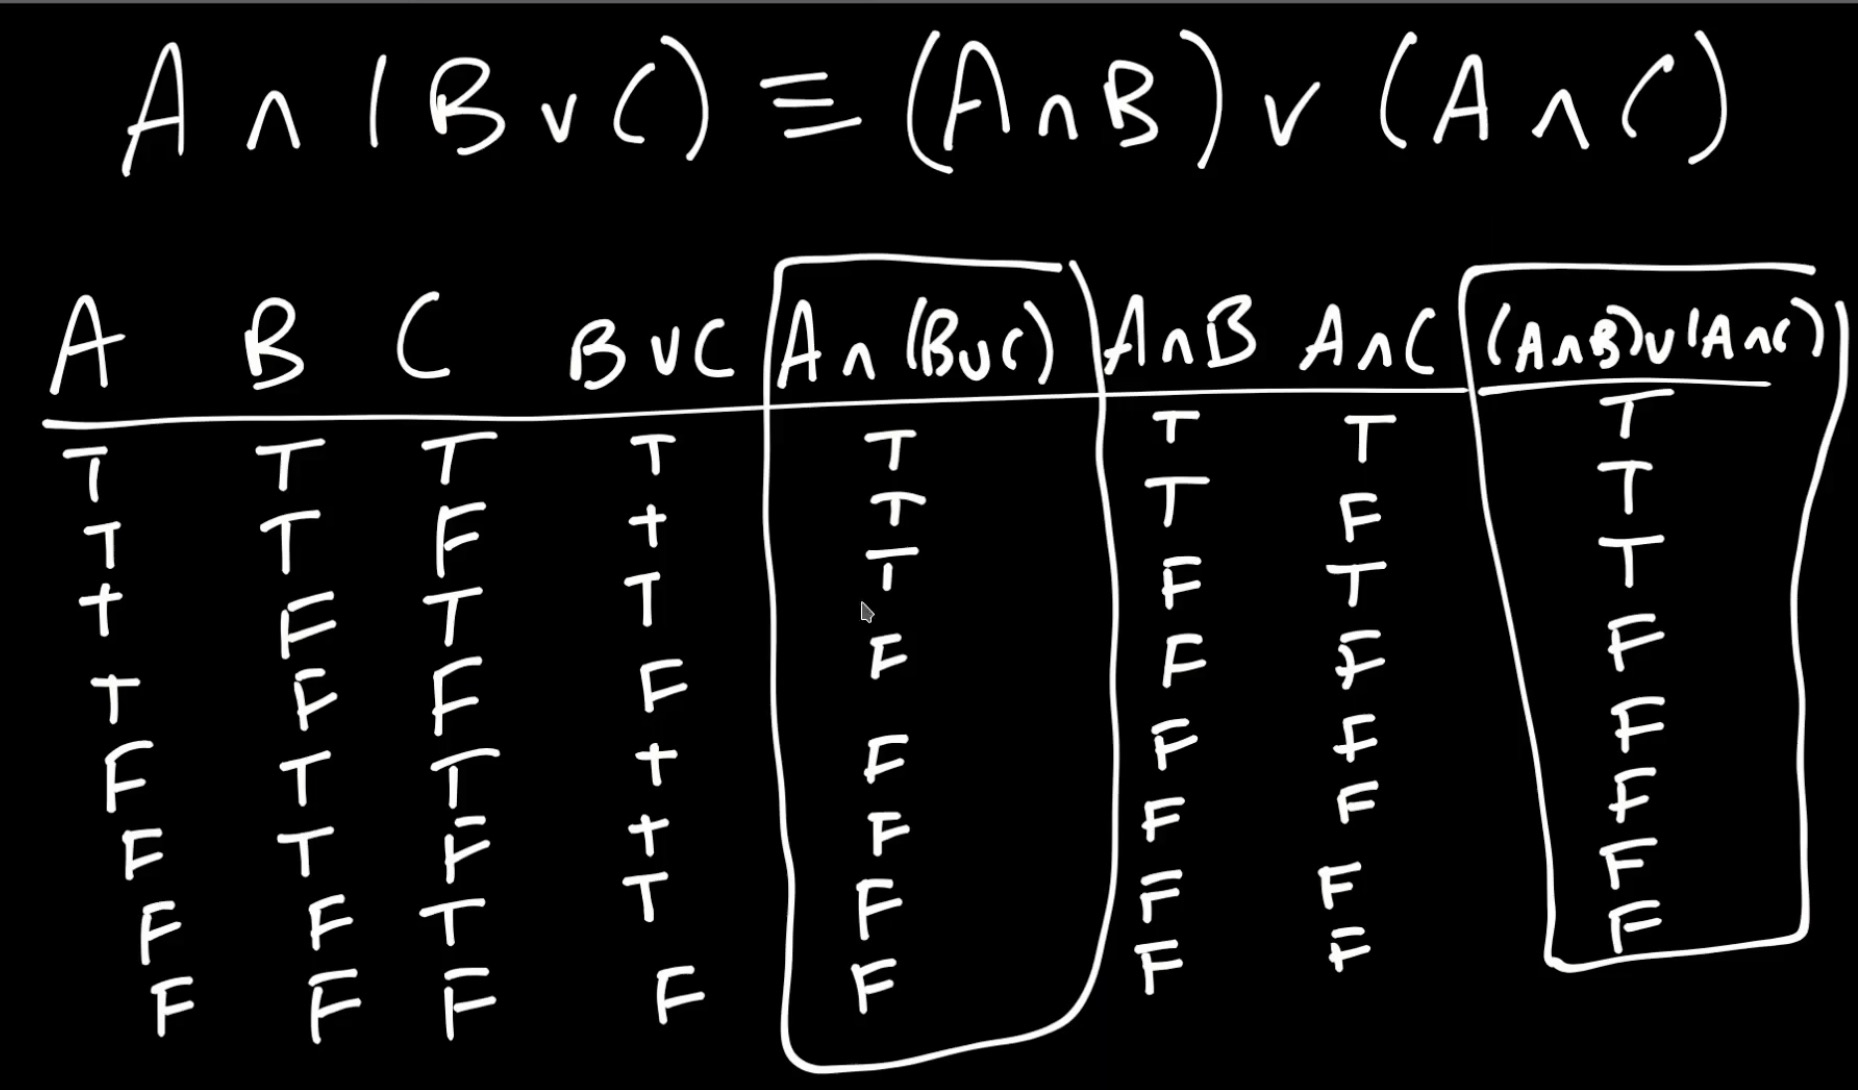 A ∧ (B ∨ C) ≡ (A ∧ B) ∨ (A ∧ C)
A B C B ∨ C A ∧ (B ∨ C) A ∧ B A ∧ C (A ∧ B) ∨ (A ∧ C)
T T T T T T T T
T T F T T T F T
T F T T T F T T
T F F F F F F F
F T T T F F F F
F T F T F F F F
F F T T F F F F
F F F F F F F F